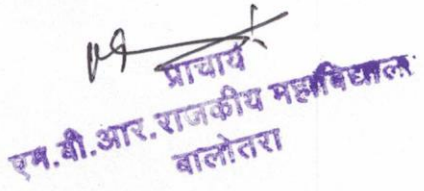 प्राचार्य
एम.बी.आर.राजकीय महाविद्यालय
बालोतरा